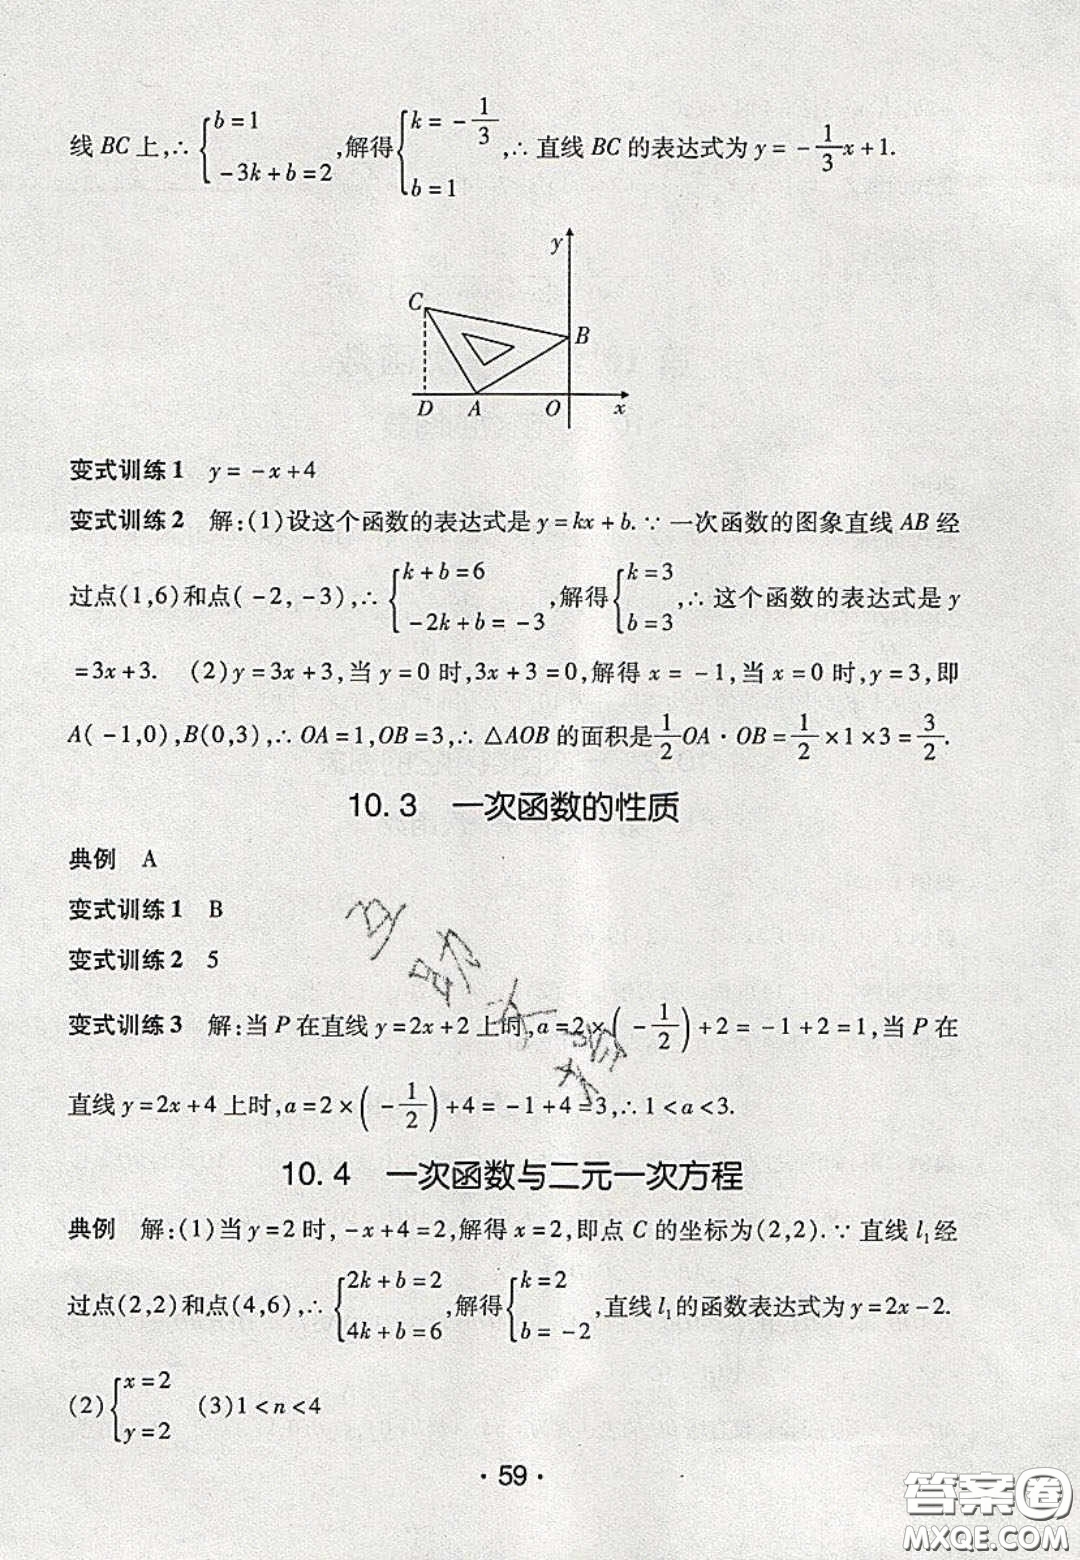 线BC上,∴{b=1 -3k+b=2,解得{k=-1/3 b=1,∴直线BC的表达式为y=-1/3x+1.
y
C
B
D A O x
变式训练1 y=-x+4
变式训练2 解:(1)设这个函数的表达式是y=kx+b.∵一次函数的图象直线AB经
过点(1,6)和点(-2,-3),∴{k+b=6 -2k+b=-3,解得{k=3 b=3,∴这个函数的表达式是y
=3x+3. (2)y=3x+3,当y=0时,3x+3=0,解得x=-1,当x=0时,y=3,即
A(-1,0),B(0,3),∴OA=1,OB=3,∴△AOB的面积是1/2OA·OB=1/2×1×3=3/2.
10.3 一次函数的性质
典例 A
变式训练1 B
变式训练2 5
变式训练3 解:当P在直线y=2x+2上时,a=2×(-1/2)+2=-1+2=1,当P在
直线y=2x+4上时,a=2×(-1/2)+4=-1+4=3,∴1<a<3.
10.4 一次函数与二元一次方程
典例 解:(1)当y=2时,-x+4=2,解得x=2,即点C的坐标为(2,2).∵直线l₁经
过点(2,2)和点(4,6),∴{2k+b=2 4k+b=6,解得{k=2 b=-2,直线l₁的函数表达式为y=2x-2.
(2){x=2 y=2 (3)1<n<4
·59·
答案圈
MXQE.COM